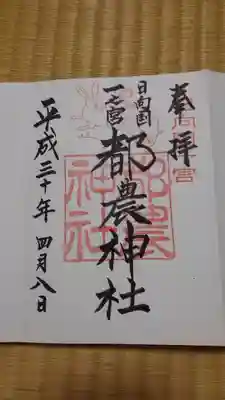 奉拝
日向国
一之宮
都農神社
平成三十年 四月八日
都農
神社